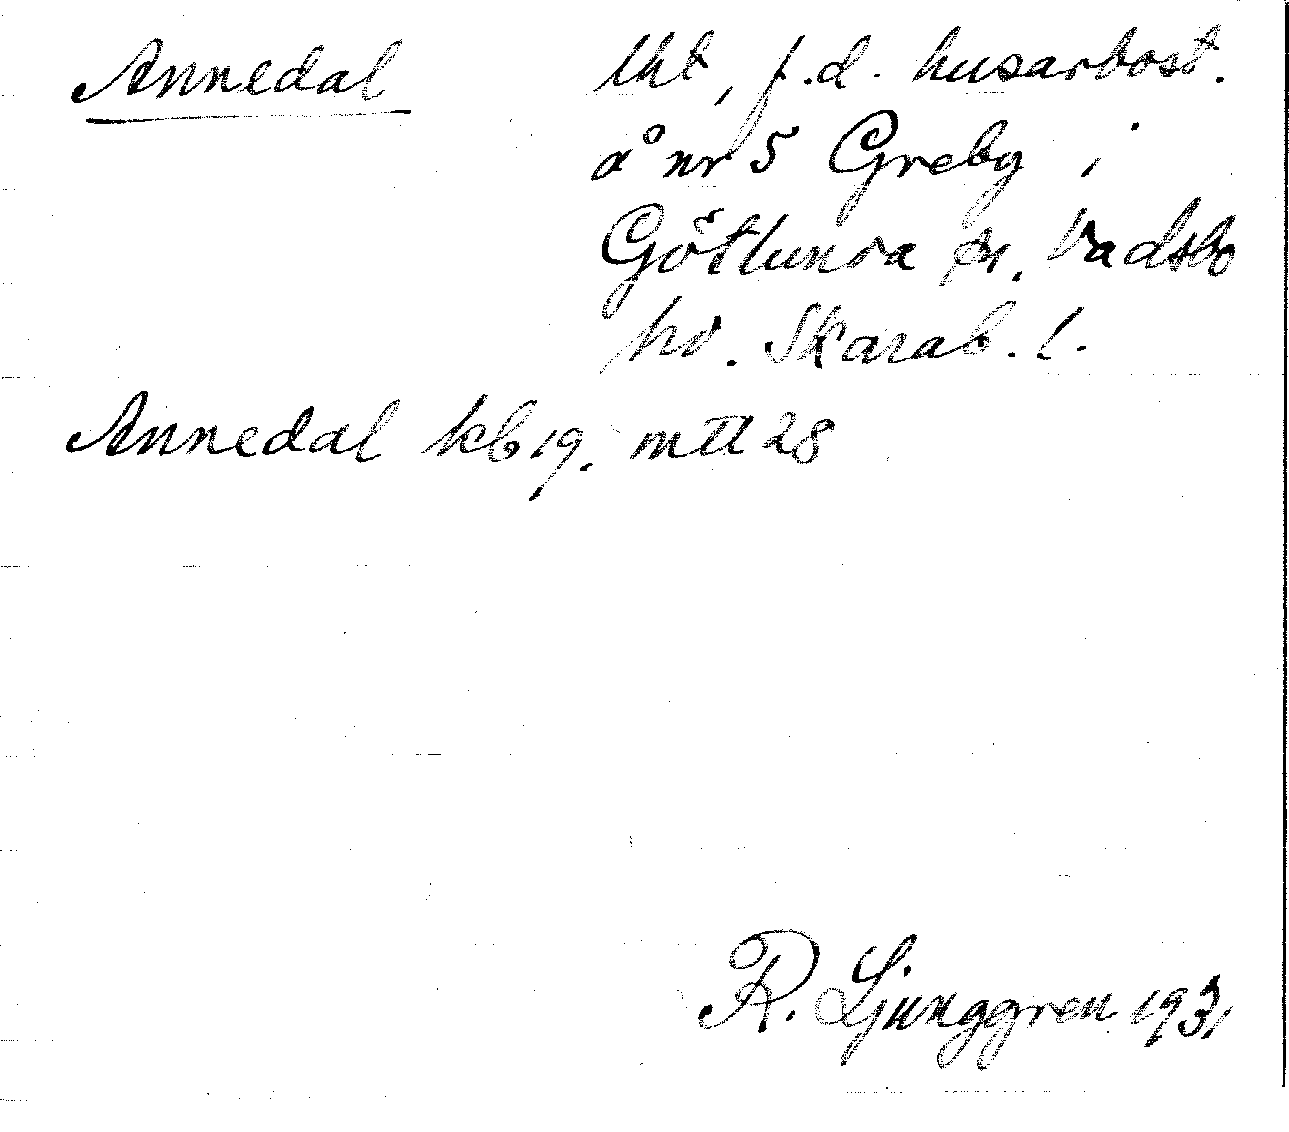 Annedal lht, f.d. husarbost.
å nr 5 Greby i
Götlunda sn. Vadsbo
hd. Skarab. l.
Annedal kb 19. mtl 28
R. Ljunggren 1931